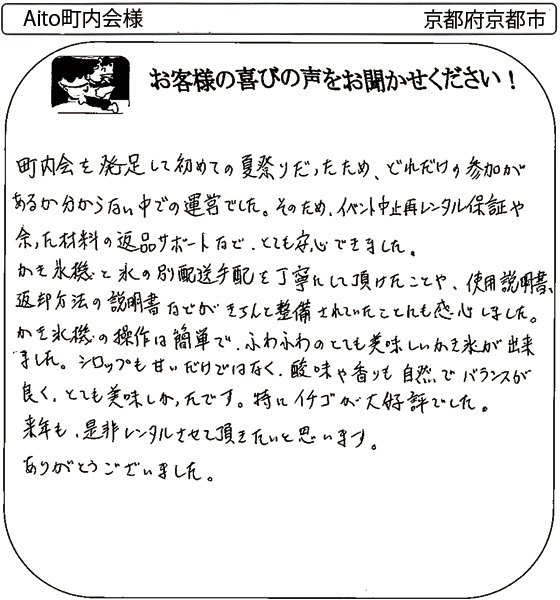 Aito町内会様
京都府京都市
お客様の喜びの声をお聞かせください！
町内会を発足して初めての夏祭りだったため、どれだけの参加が
あるか分からない中での運営でした。そのため、イベント中止再レンタル保証や
余った材料の返品サポートなど、とても安心できました。
かき氷機と氷の別配送手配を丁寧にして頂けたことや、使用説明書、
返却方法の説明書などがきちんと整備されていたことにも感心しました。
かき氷機の操作は簡単で、ふわふわのとても美味しいかき氷が出来
ました。シロップも甘いだけではなく、酸味や香りも自然でバランスが
良く、とても美味しかったです。特にイチゴが大好評でした。
来年も、是非レンタルさせて頂きたいと思います。
ありがとうございました。